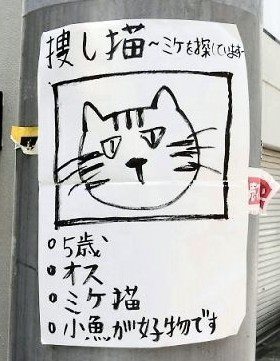 捜し猫~ミケを探しています~
5歳
オス
ミケ猫
小魚が好物です